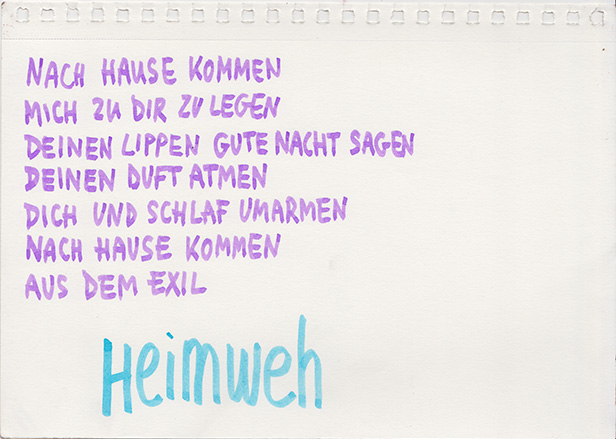 NACH HAUSE KOMMEN
MICH ZU DIR ZU LEGEN
DEINEN LIPPEN GUTE NACHT SAGEN
DEINEN DUFT ATMEN
DICH UND SCHLAF UMARMEN
NACH HAUSE KOMMEN
AUS DEM EXIL
Heimweh